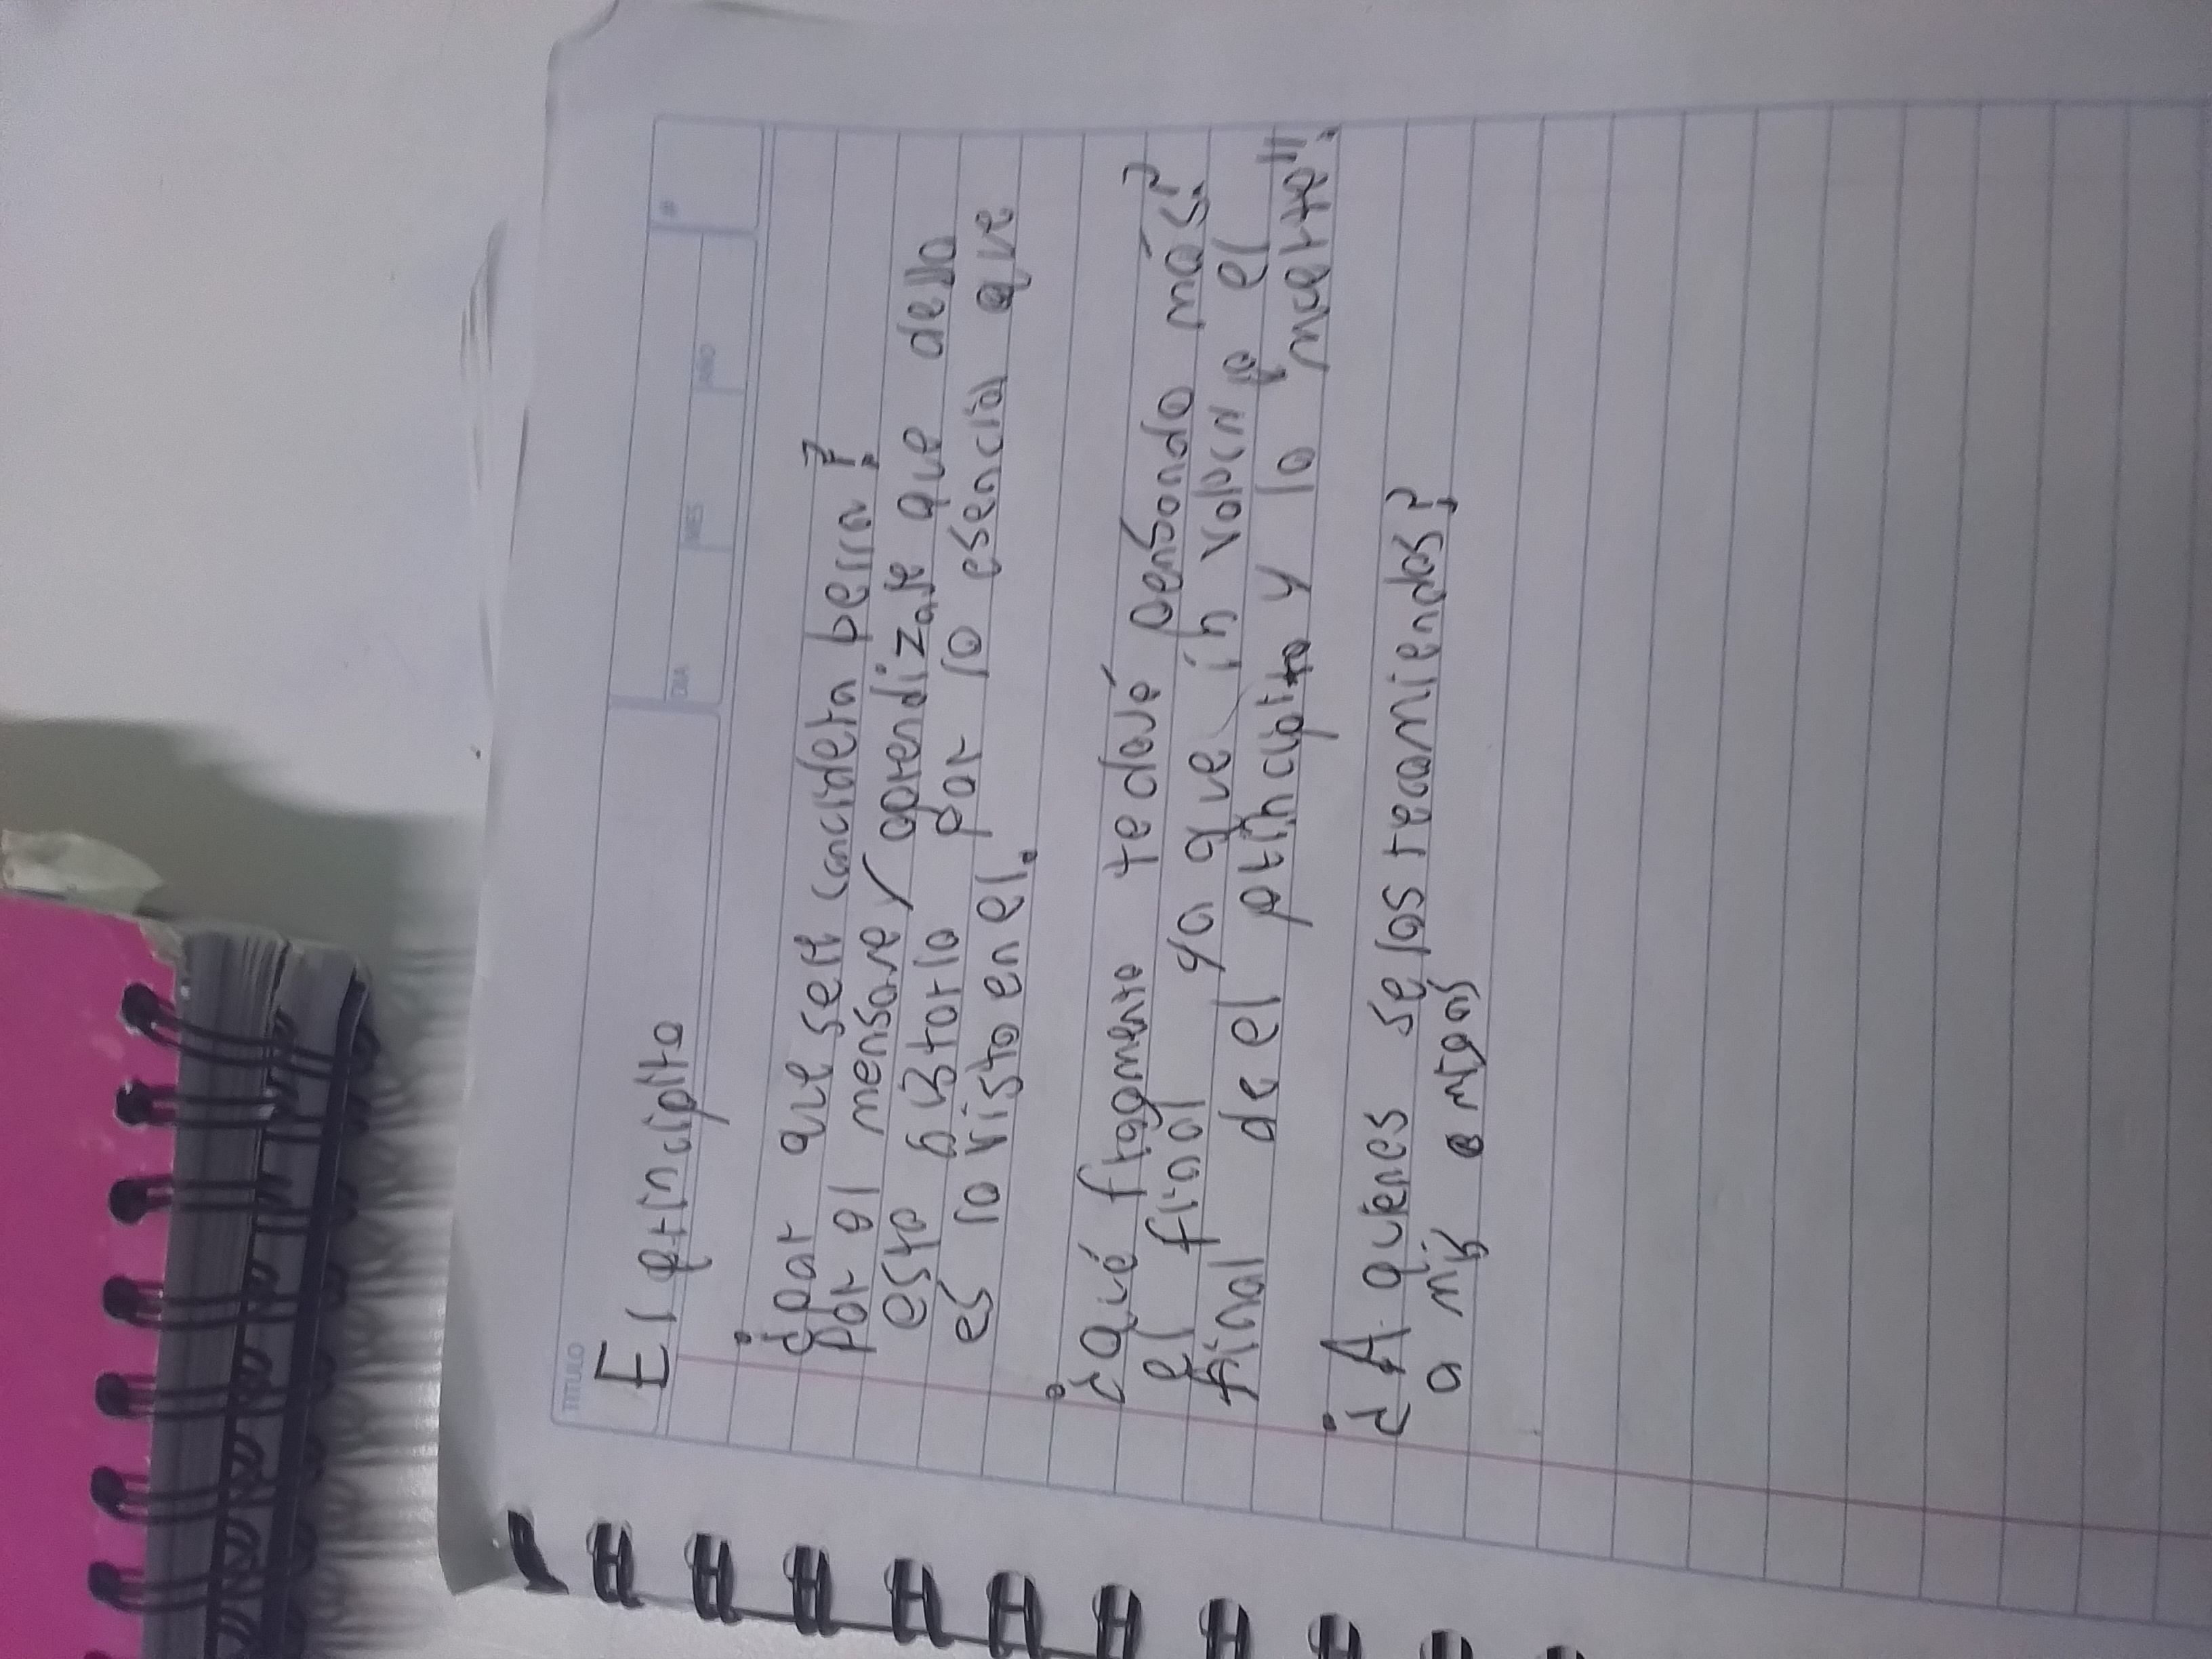 TITULO
El principito
DIA MES AÑO #
¿por que sera concideta bella?
por el mensaje/aprendizaje que dello
esta historia por lo esencial que
es lo visto en el.
¿Qué fragmento te quedó pegando más?
el final ya que
final de el principito y la muerte".
¿A quienes se los recomiendas?
a mis amigos